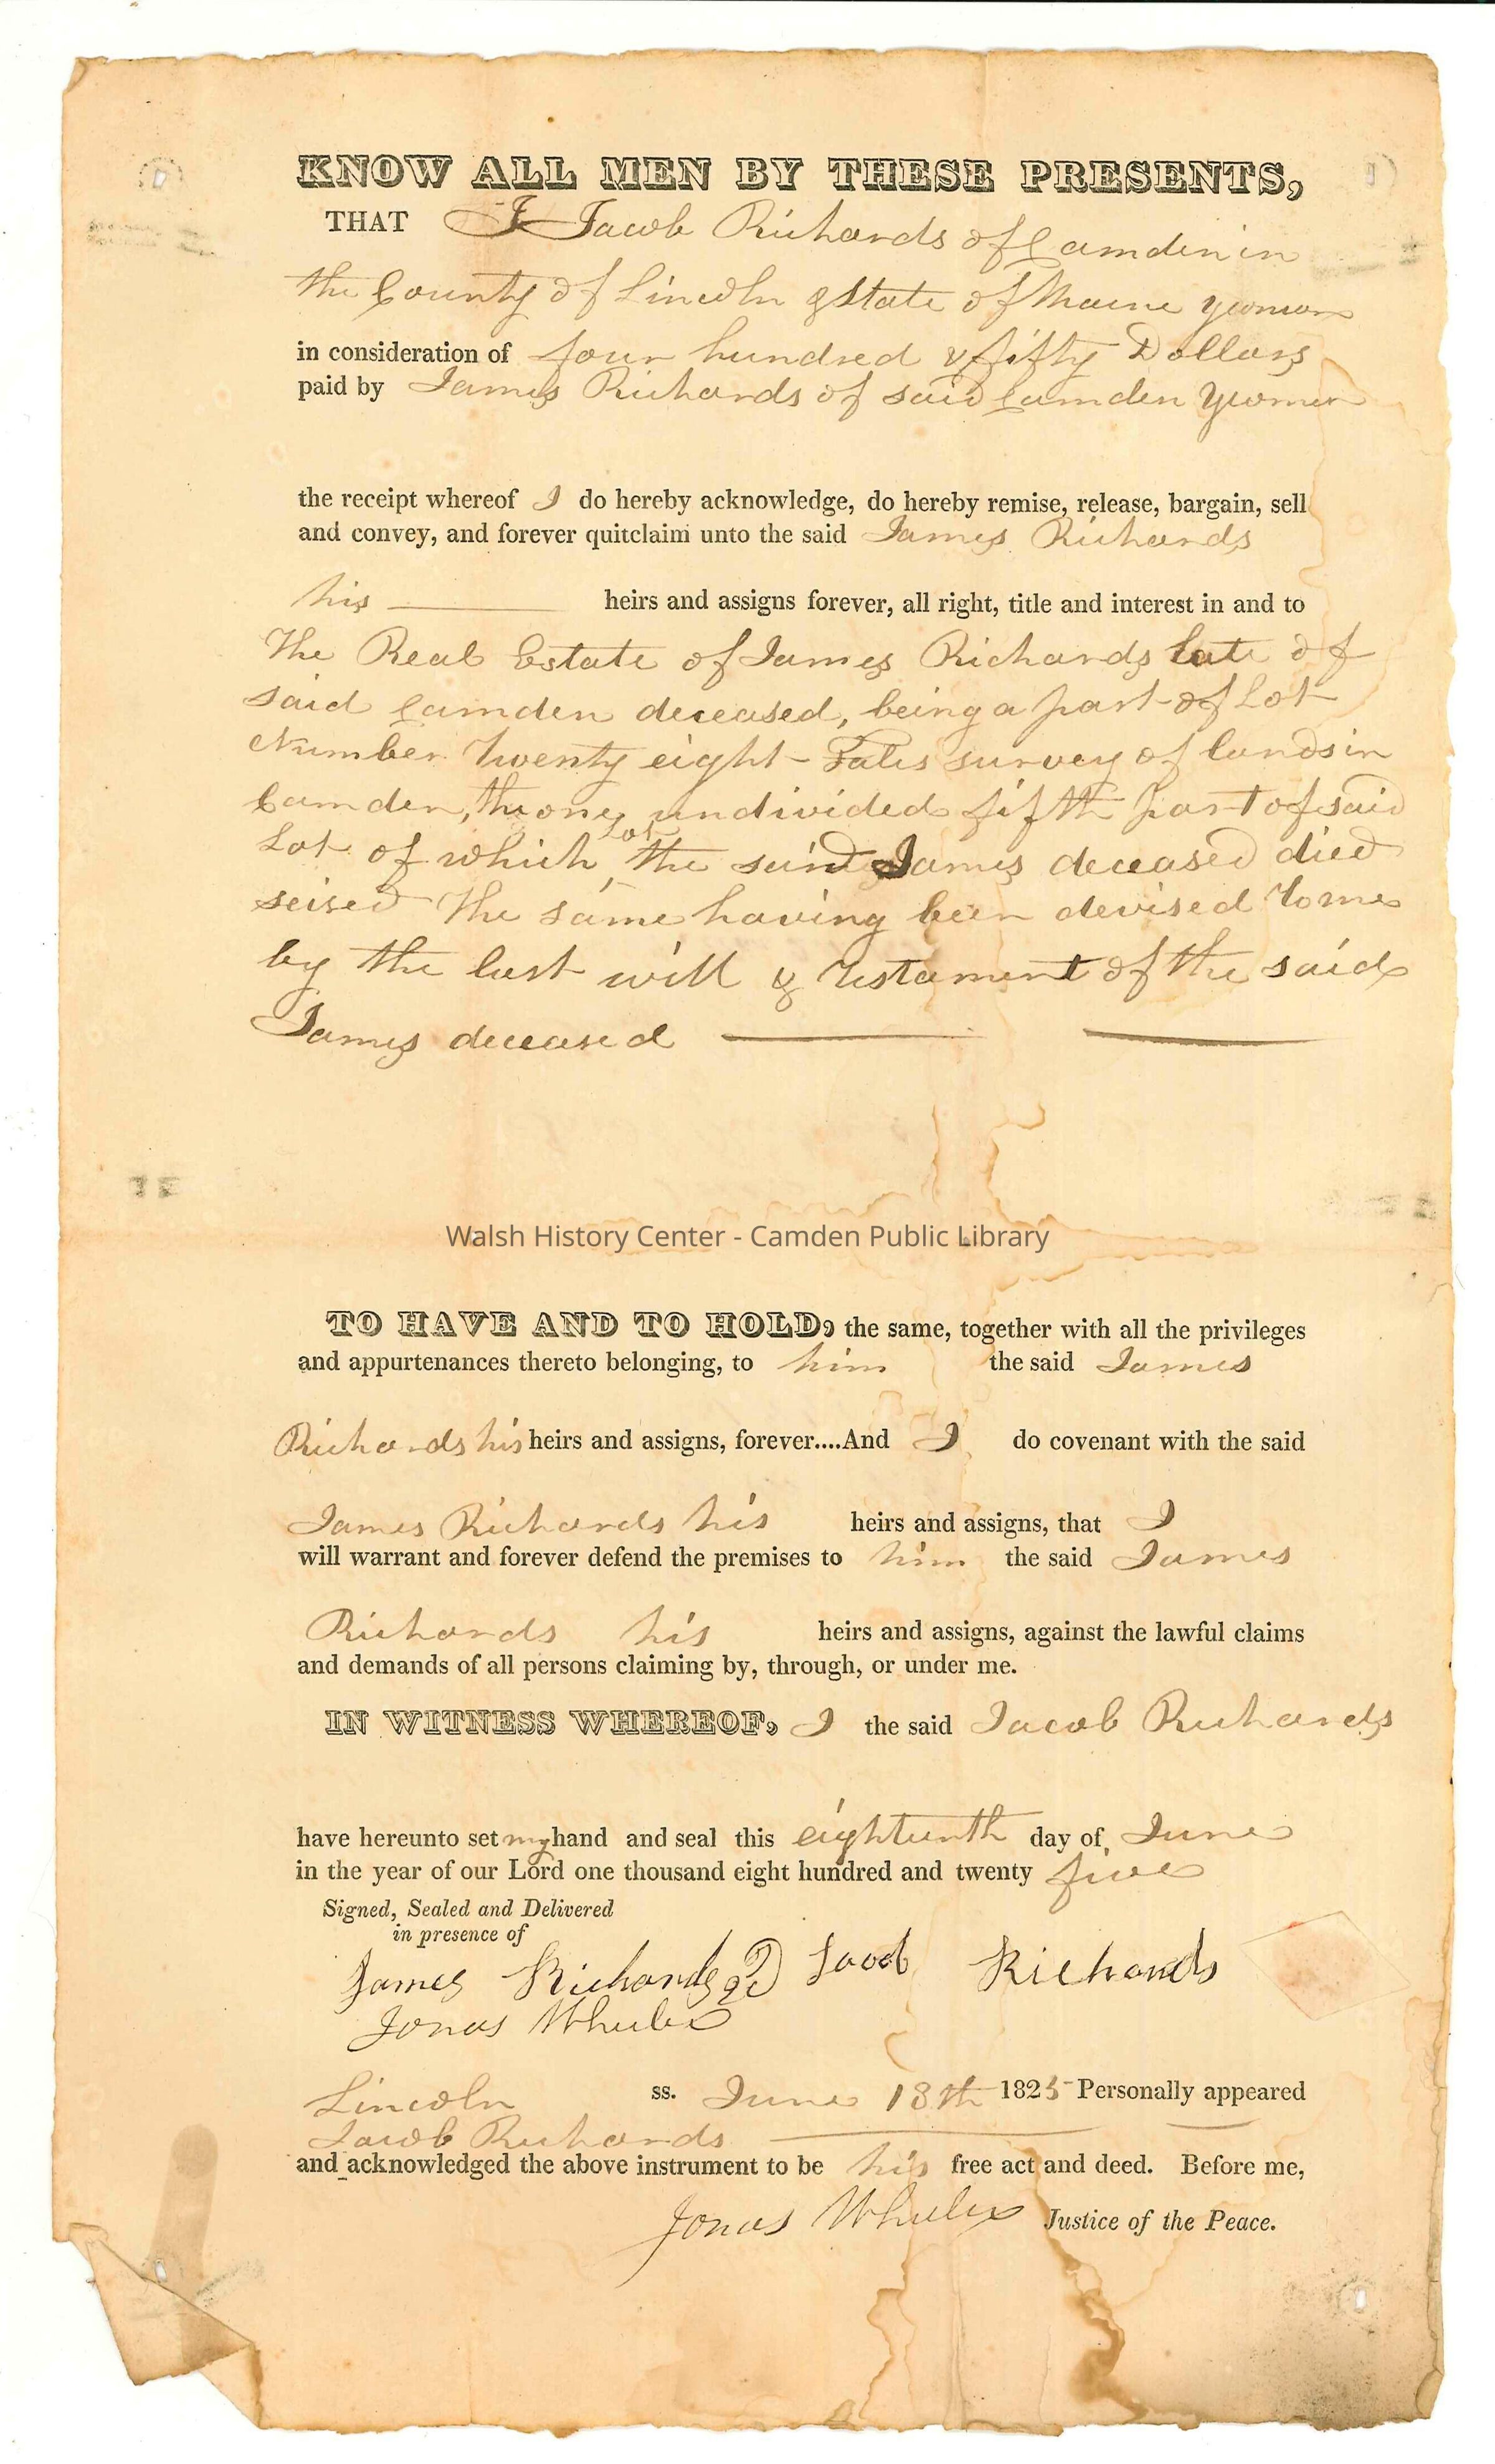 KNOW ALL MEN BY THESE PRESENTS,
THAT I Jacob Richards of Camden in
the County of Lincoln & State of Maine yeoman
in consideration of four hundred & fifty Dollars
paid by James Richards of said Camden Yeoman
the receipt whereof I do hereby acknowledge, do hereby remise, release, bargain, sell
and convey, and forever quitclaim unto the said James Richards
his heirs and assigns forever, all right, title and interest in and to
The Real Estate of James Richards late of
said Camden deceased, being a part of Lot
Number Twenty eight - Fales survey of lands in
Camden, the one undivided fifth part of said
Lot of which Lot the said James deceased died
seised The same having been devised to me
by the last will & Testament of the said
James deceased
Walsh History Center - Camden Public Library
TO HAVE AND TO HOLD, the same, together with all the privileges
and appurtenances thereto belonging, to him the said James
Richards his heirs and assigns, forever....And I do covenant with the said
James Richards his heirs and assigns, that I
will warrant and forever defend the premises to him the said James
Richards his heirs and assigns, against the lawful claims
and demands of all persons claiming by, through, or under me.
IN WITNESS WHEREOF, I the said Jacob Richards
have hereunto set my hand and seal this eighteenth day of June
in the year of our Lord one thousand eight hundred and twenty five
Signed, Sealed and Delivered
in presence of
James Richards 2d Jacob Richards
Jonas Wheeler
Lincoln ss. June 18th 1825 Personally appeared
Jacob Richards
and acknowledged the above instrument to be his free act and deed. Before me,
Jonas Wheeler Justice of the Peace.